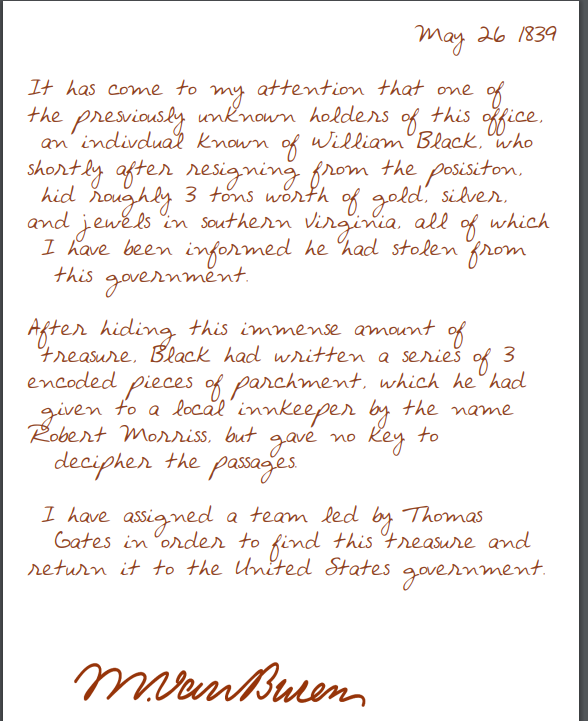 May 26 1839
It has come to my attention that one of
the presviously unknown holders of this office,
an indivdual known of William Black, who
shortly after resigning from the posisiton,
hid roughly 3 tons worth of gold, silver,
and jewels in southern Virginia, all of which
I have been informed he had stolen from
this government.
After hiding this immense amount of
treasure, Black had written a series of 3
encoded pieces of parchment, which he had
given to a local innkeeper by the name
Robert Morriss, but gave no key to
decipher the passages.
I have assigned a team led by Thomas
Gates in order to find this treasure and
return it to the United States government.
M. Van Buren